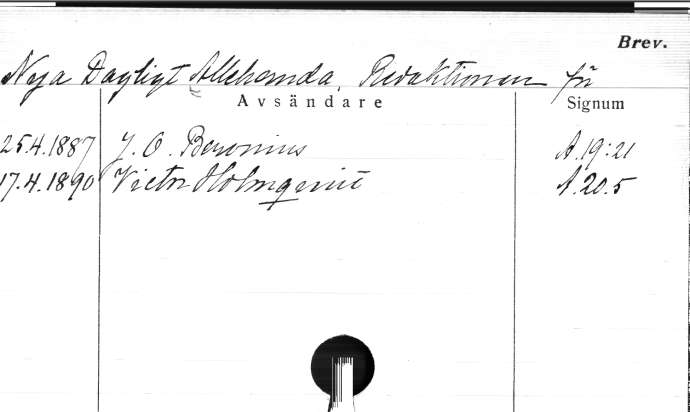 Brev.
Nya Dagligt Allehanda, Redaktionen för
Avsändare Signum
25.4.1887 J. O. Beronius A.19:21
17.4.1890 Victor Holmqvist A.20.5